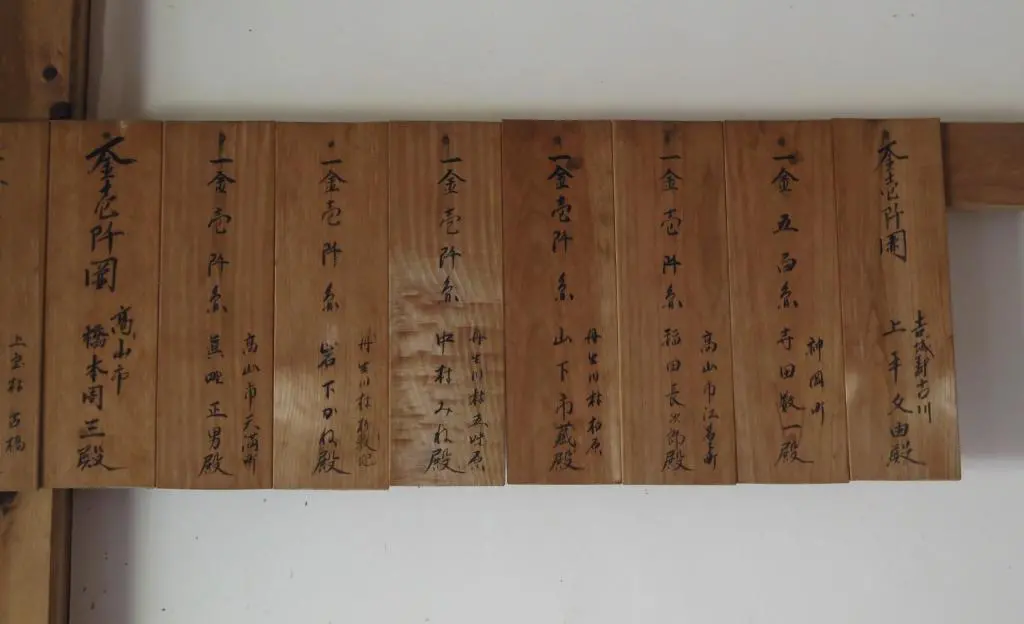 金壱阡圓
吉城郡古川
上平文由殿
神岡町
一金五百円 寺田敬一殿
高山市江名子町
一金壱阡円 稲田長次郎殿
丹生川村柏原
一金壱阡円 山下市蔵殿
丹生川村五味原
一金壱阡円 中村みね殿
丹生川村折敷地
一金壱阡円 岩下かね殿
高山市天満町
一金壱阡円 正男殿
金壱阡圓
高山市
橋本 三殿
上宝村